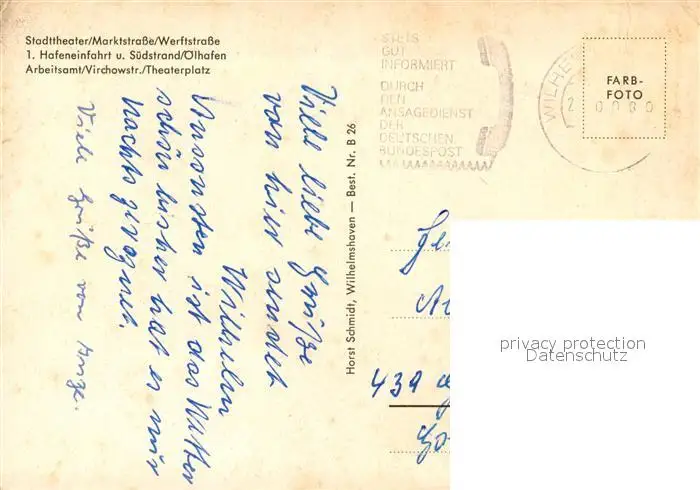 Stadttheater/Marktstraße/Werftstraße
1. Hafeneinfahrt u. Südstrand/Ölhafen
Arbeitsamt/Virchowstr./Theaterplatz
STETS
GUT
INFORMIERT
DURCH
DEN
ANSAGEDIENST
DER
DEUTSCHEN
BUNDESPOST
WILHE
2
0080
FARB-
FOTO
Viele liebe Grüße
von hier sendet
Wilhelm
Ansonsten ist das Wetter
schön bisher hat es nur
nachts geregnet.
Viele Grüße von Inge.
Horst Schmidt, Wilhelmshaven — Best. Nr. B 26
439
privacy protection
Datenschutz